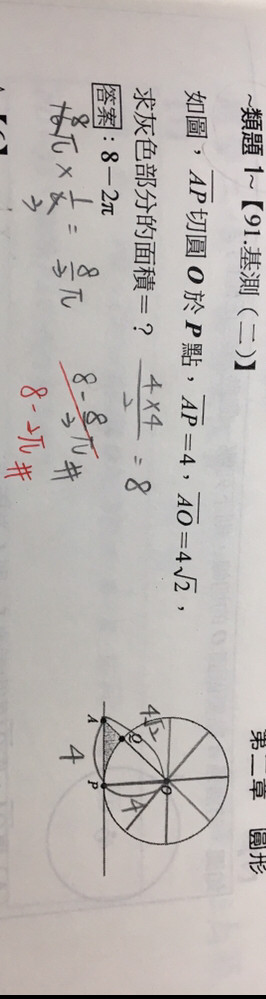 ~類題 1~【91.基測（二）】
如圖，AP切圓 O 於 P 點，AP=4，AO=4√2，
求灰色部分的面積=？ 4×4/2 = 8
答案：8−2π
8
π × 1/ = 8/3 π
8 - 8/3 π #
8 - 2π #
第二章 圓形
A
P
Q
O
4√2
4
4